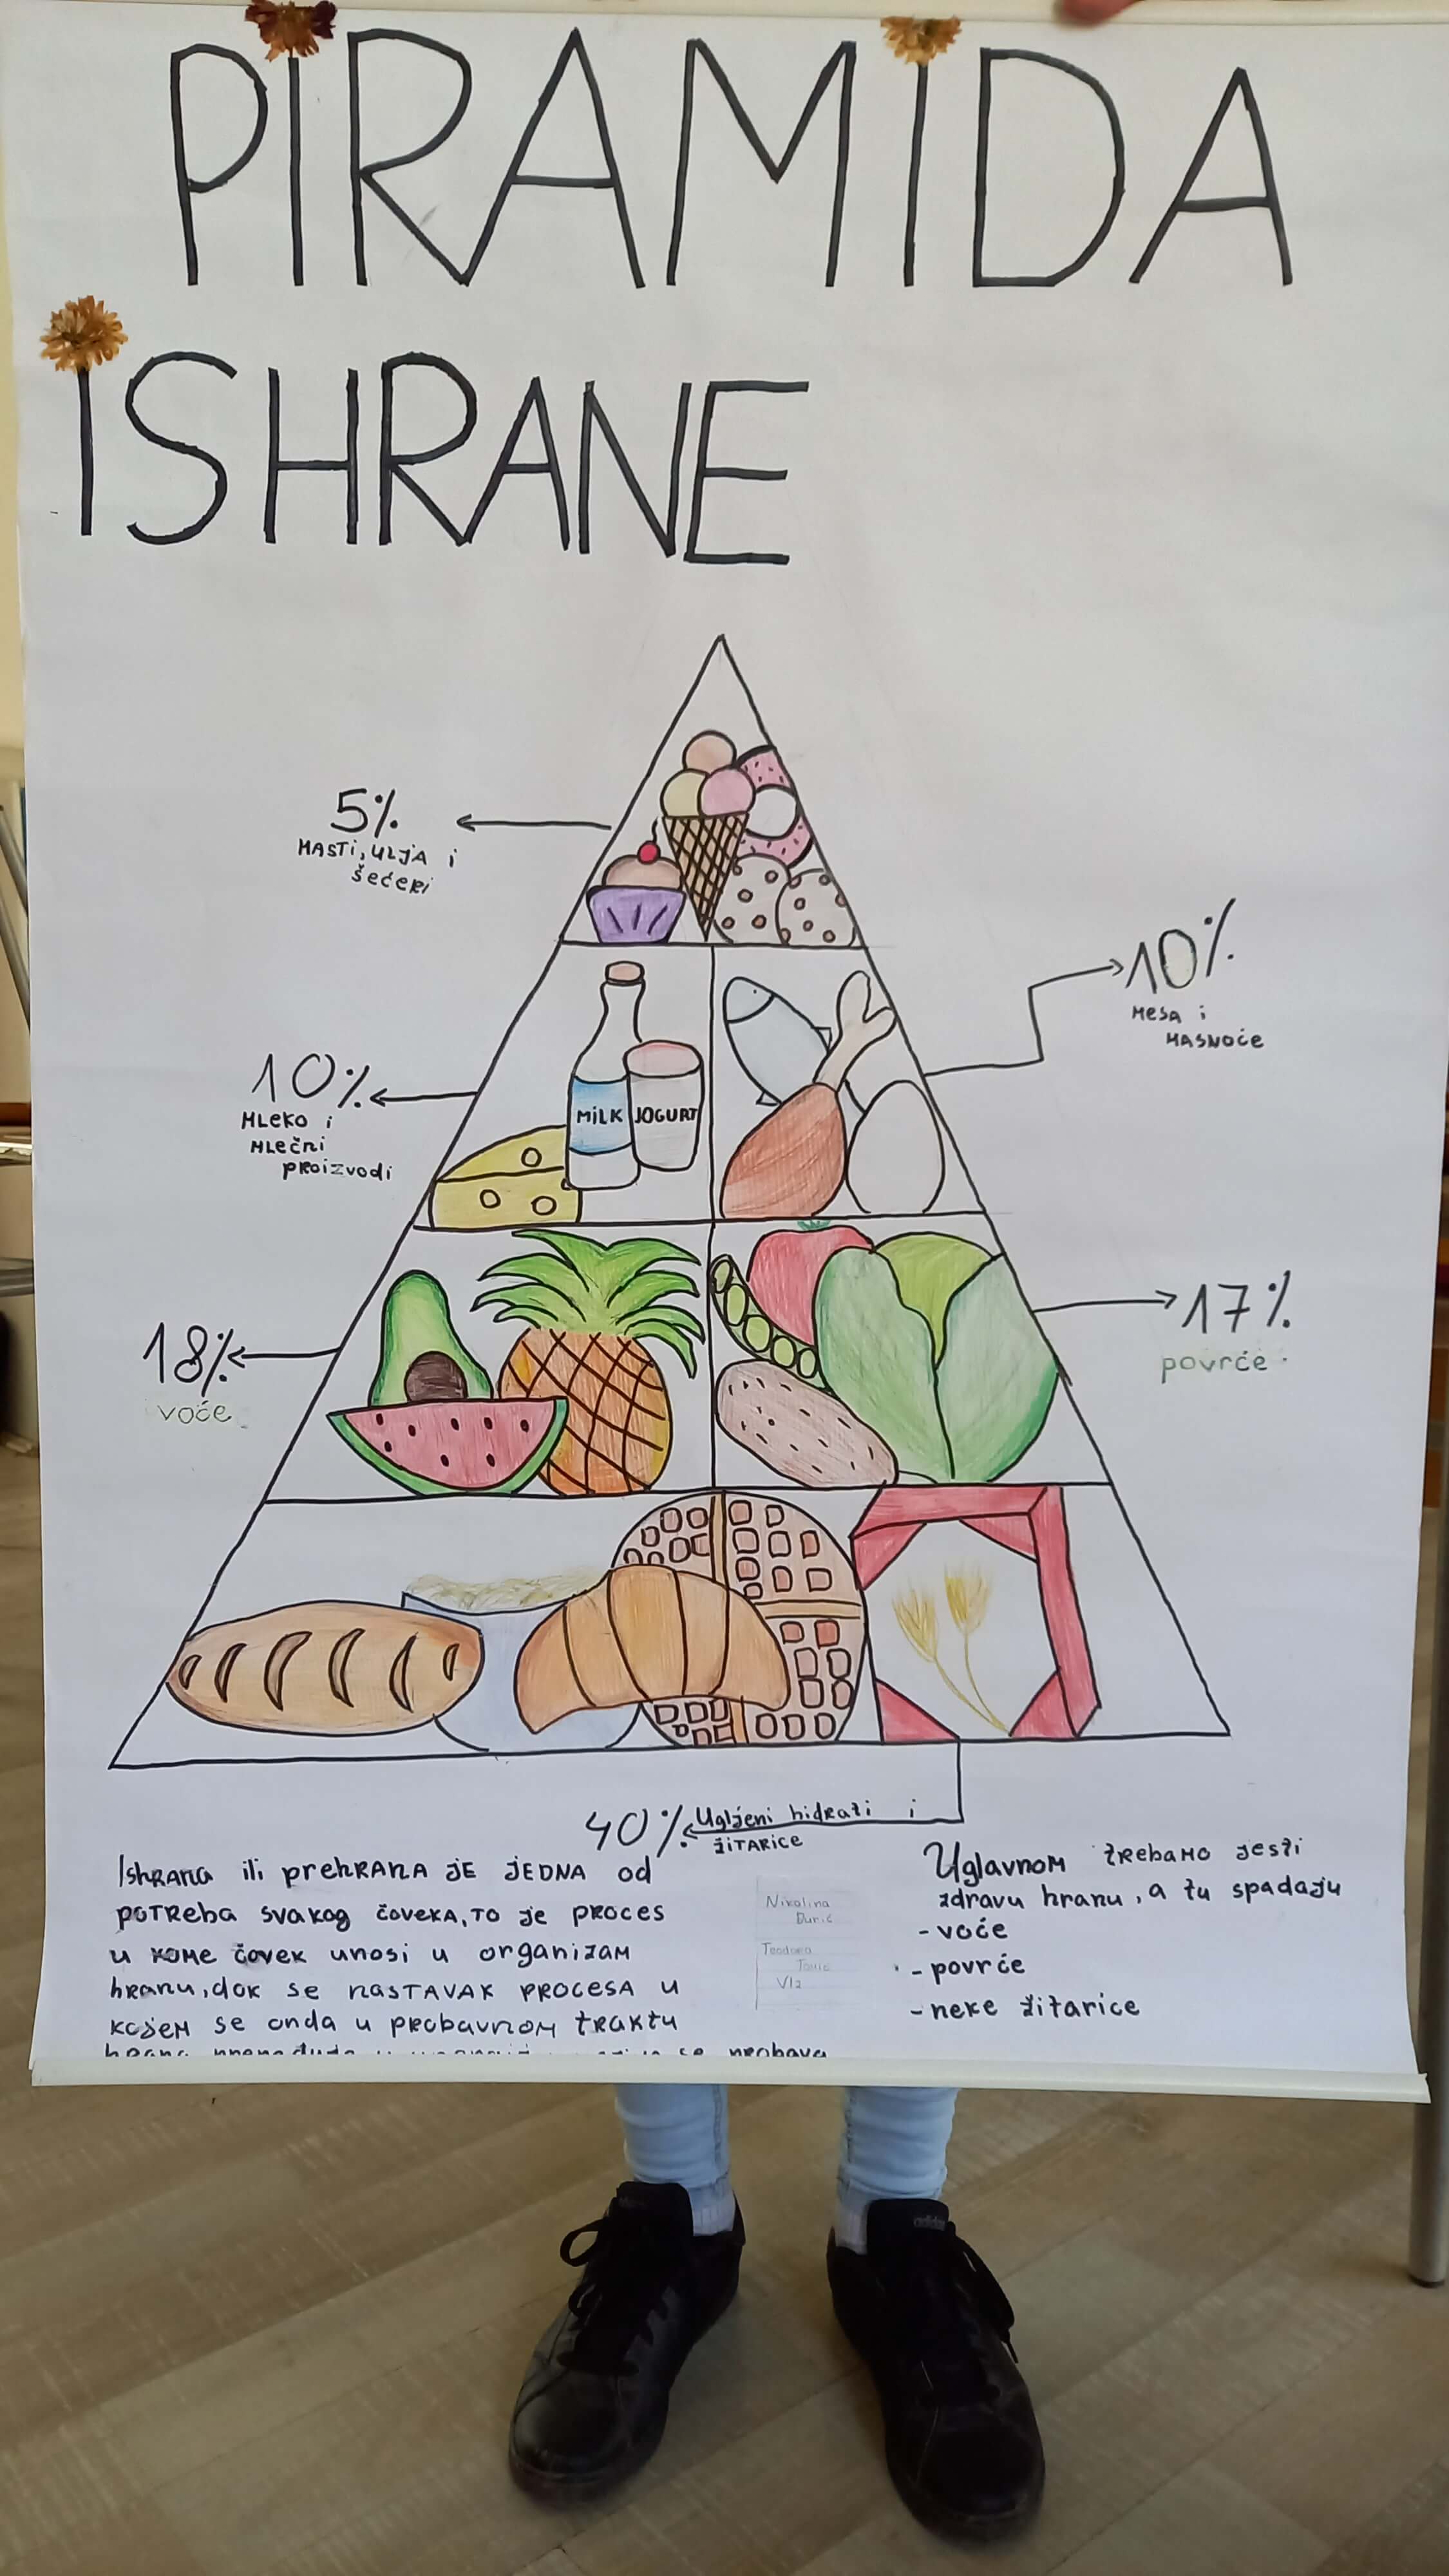 PIRAMIDA
ISHRANE
5%
MASTI, ULJA i
šećeri
10%
Mesa i
MASNOĆE
10%
MLEKO i
MLEČNI
proizvodi
MILK
JOGURT
18%
voće
17%
povrće
40% Ugljeni hidrati i
ŽITARICE
Ishrana ili prehrana je jedna od
potreba svakog čoveka, to je proces
u kome čovek unosi u organizam
hranu, dok se nastavak procesa u
kojem se onda u probavnom traktu
hrana se probava
Nikolina
Đurić
Teodora
Tomić
VI2
Uglavnom trebamo jesti
zdravu hranu, a tu spadaju
- voće
- povrće
- neke žitarice
adidas